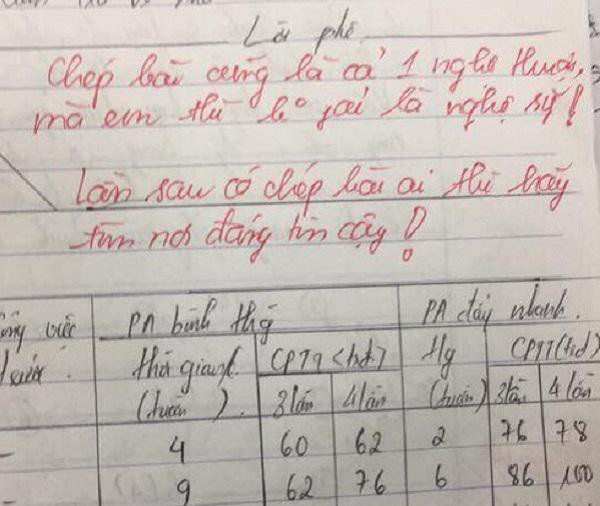 Lời phê
Chép bài cũng là cả 1 nghệ thuật,
mà em thì k° phải là nghệ sỹ!
Lần sau có chép bài ai thì hãy
tìm nơi đáng tin cậy!
việc PA bình thg PA đẩy nhanh.
thời gian CPTT (tr.đ) tg CPTT (trđ)
(tuần) 3 lần 4 lần (tuần) 3 lần 4 lần
- 4 60 62 2 76 78
- 9 62 76 6 86 100